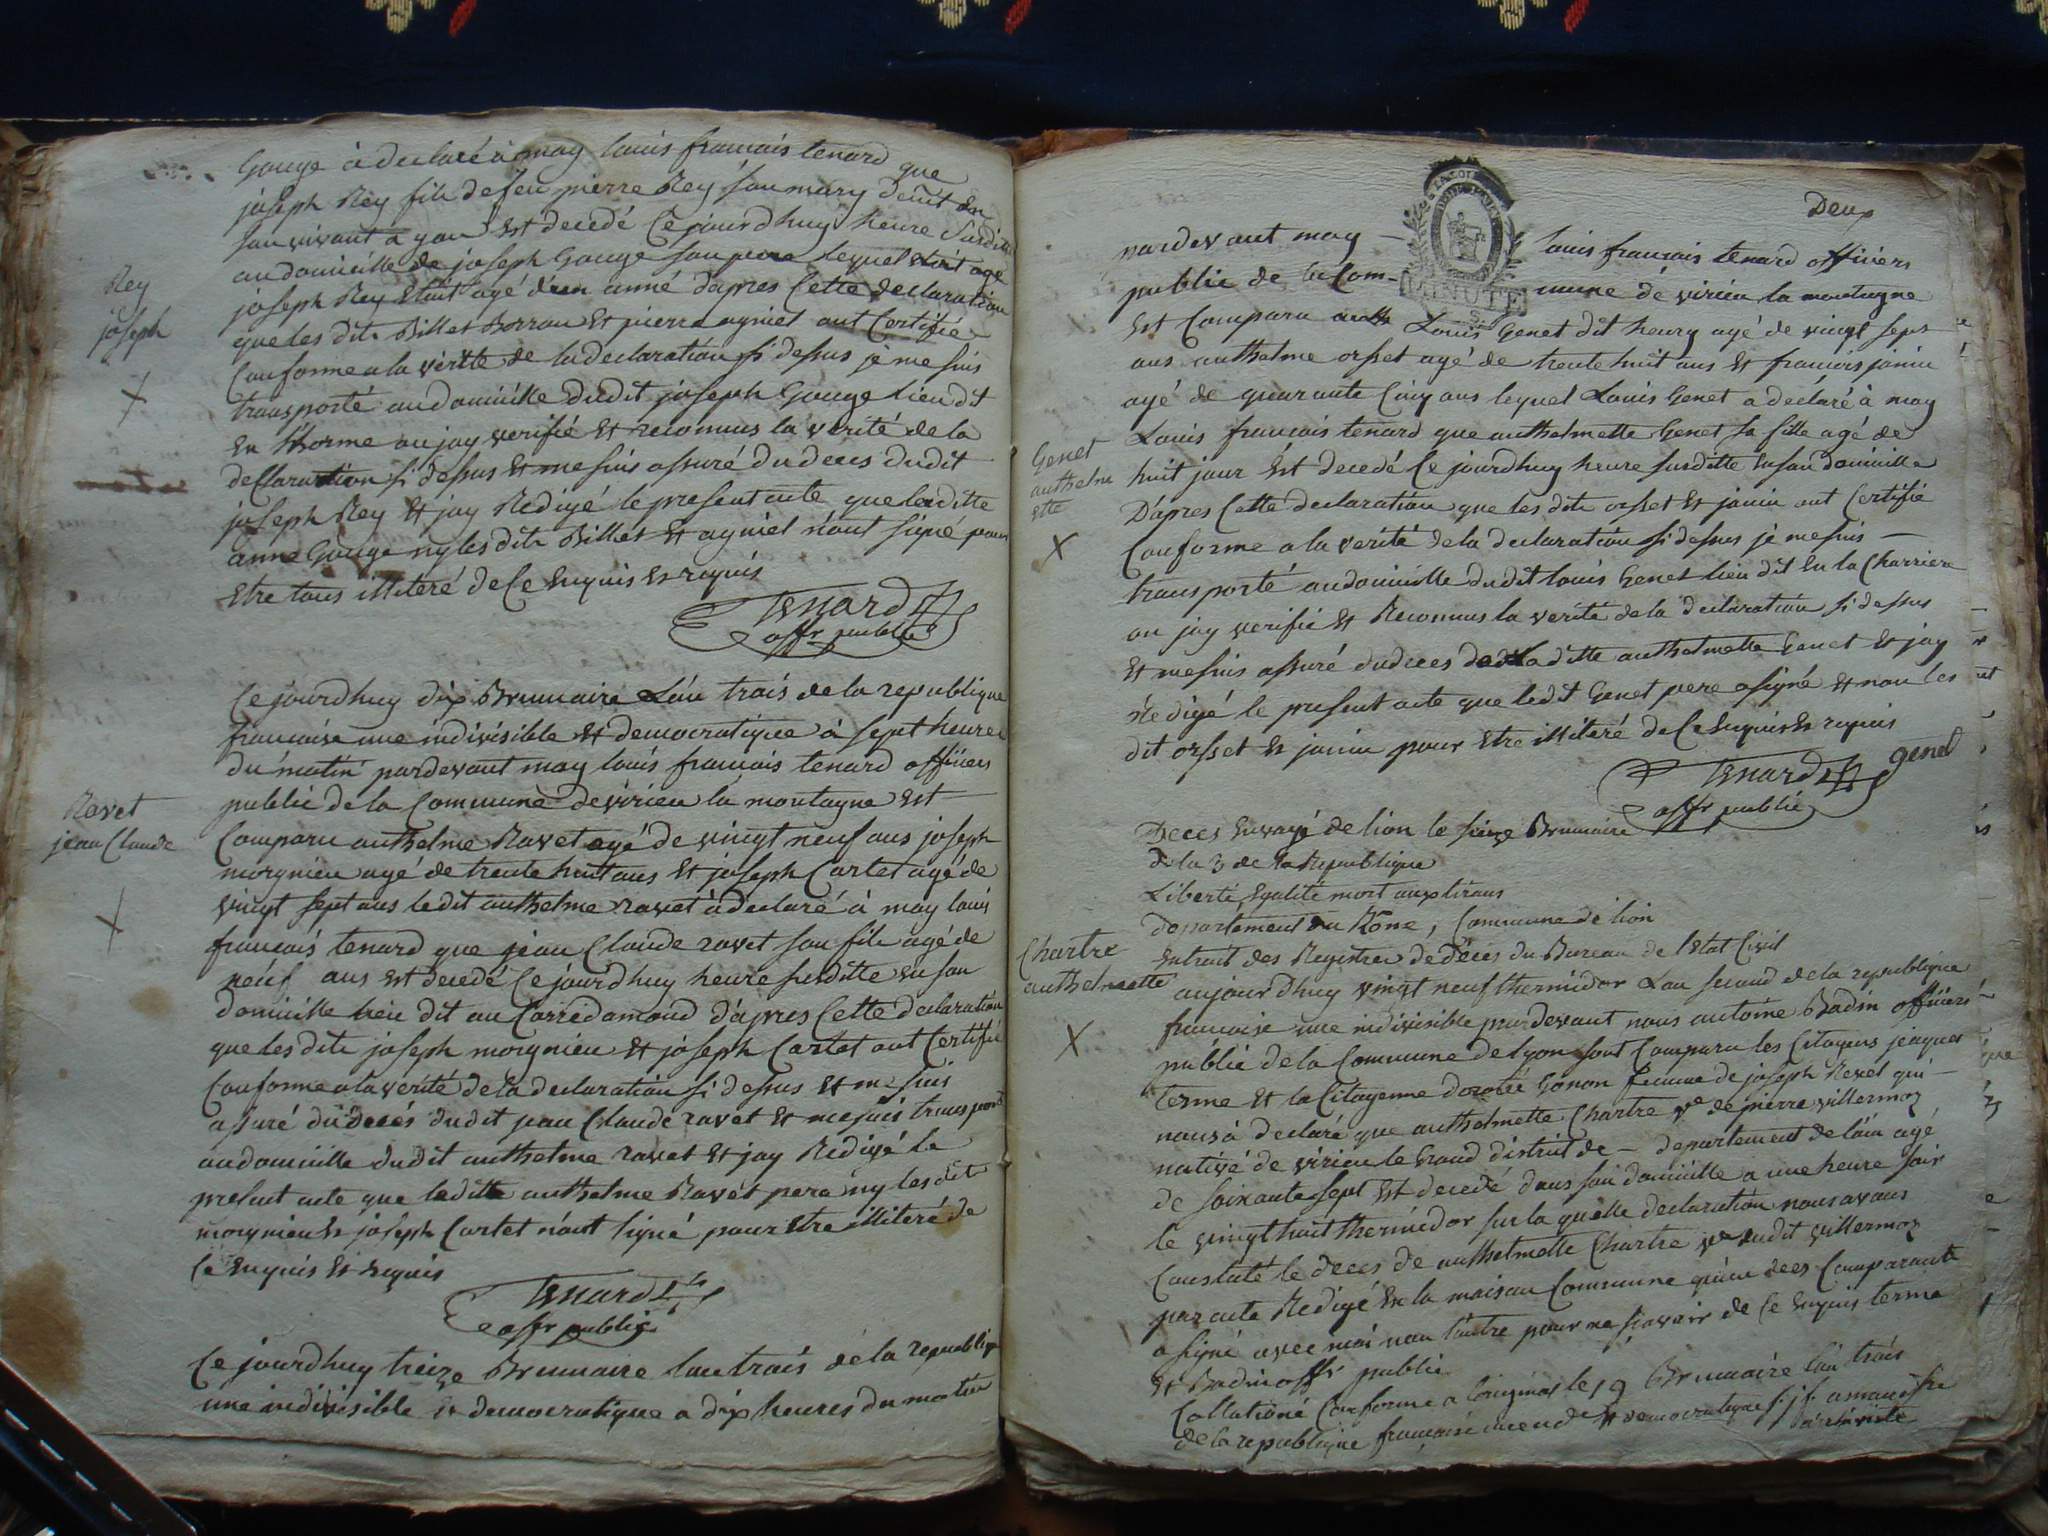 Gouge à declaré à moy louis francois tenard que
joseph Rey fils de feu pierre Rey son mary
son vivant est decedé Ce jourdhuy heure susditte
au domicille de joseph Gouge son pere lequel
joseph Rey etait agé d'un année d'apres Cette declaration
que les dits Billet Borron et pierre agniel ont Certifié
Conforme a la vérité de la declaration si dessus je me suis
transporté au domicille dudit joseph Gouge lieu dit
en ou jay verifié et reconnus la vérité de la
declaration si dessus et me suis assuré du deces dudit
joseph Rey et jay Redigé le present acte que laditte
anne Gouge ny les dits Billet et agniel n'ont signé pour
etre tous illiteré de Ce enquis et requis
Rey
joseph
X
Tenard
offr public
Ce jourdhuy dix Brumaire L'an trois de la republique
francaise une indivisible et democratique à sept heures
du matin pardevant moy louis francois tenard officiers
public de la Commune de virieu la montagne est
Comparu anthelme Ravet agé de vingt neuf ans joseph
morgnieu agé de trente huit ans et joseph Cartet agé de
vingt sept ans ledit anthelme ravet à declaré à moy louis
francois tenard que jean Claude ravet son fils agé de
neuf ans est decedé Ce jourdhuy heure susditte en son
domicille lieu dit au d'apres Cette declaration
que les dits joseph morgnieu et joseph Cartet ont Certifié
Conforme a la vérité de la declaration si dessus et me suis
assuré du deces dudit jean Claude ravet et me suis transporté
au domicille dudit anthelme ravet et jay Redigé le
present acte que leditte anthelme Ravet pere ny les dit
morgnieu et joseph Cartet n'ont signé pour etre illiteré de
Ce enquis et requis
Ravet
jean Claude
X
Tenard
offr public
Ce jourdhuy treize Brumaire l'an trois de la republique
une indivisible et democratique a dix heures du matin
Deux
MINUTE
pardevant moy — louis francois tenard officiers
public de la Com- mune de virieu la montagne
est Comparu Louis Genet dit henry agé de vingt sept
ans anthelme orsset agé de trente huit ans et francois janin
agé de quarante Cinq ans lequel Louis Genet a déclaré à moy
Louis francois tenard que anthelmette Genet sa fille agé de
huit jour est decedé Ce jourdhuy heure susditte en son domicille
D'apres Cette declaration que les dits orsset et janin ont Certifié
Conforme a la verité de la declaration si dessus je me suis —
transporté au domicille dudit louis Genet lieu dit en la Charriere
ou jay verifié et Reconnus la verité de la declaration si dessus
et me suis assuré du deces de laditte anthelmette Genet et jay
Redigé le present acte que ledit Genet pere a signé et non les
dit orsset et janin pour etre illiteré de Ce enquis et requis
Genet
anthelm
ette
X
genet
Tenard
offr public
Deces envoyé de lion le seize Brumaire
de la 3 de la Republique
Liberté egalité mort aux tirans
departement du Rône, Commune de lion
Extrait des Registres de déces du Bureau de l'etat Civil
aujourdhuy vingt neuf thermidor L'an second de la republique
francaise une indivisible pardevant nous antoine Badin officiers
public de la Commune de Lyon sont Comparu les Citoyens jeaques
terme et la Citoyenne dorotée Gonon femme de joseph Revel qui —
nous à declaré que anthelmette Chartre ve de pierre villermoz
native de virieu le Grand district de — departement de l'ain agé
de soixante sept est decedé dans son domicille a une heure soir
le vingt huit thermidor sur la quelle declaration nous avons
Constaté le deces de anthelmette Chartre ve dudit villermoz
par acte Redigé en la maison Commune qu'un des Comparants
a signé avec moi non l'autre pour ne sçavoir de Ce enquis terme
et Badin offr public
Collationé Conforme a l'original le 19 Brumaire l'an trois
de la republique francaise une inde et democratique
Chartre
anthelmette
X